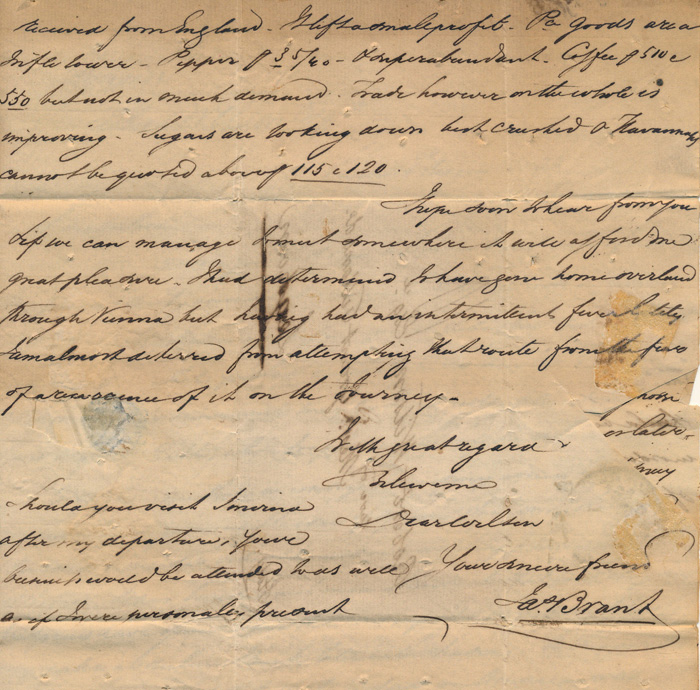 received from England. I left a small profit. Pa goods are a
trifle lower - Pepper p 3 5/40 - & superabundant. Coffee p 510 c
550 but not in much demand. Trade however on the whole is
improving. Sugars are looking down best crushed & Havannah
cannot be quoted above p 115 c 120.
I hope soon to hear from you
& if we can manage to meet somewhere it will afford me
great pleasure. I had determined to have gone home overland
through Vienna but having had an intermittent fever lately
I am almost deterred from attempting that route from the fear
of a reoccurence of it on the Journey.
With great regard
Believe me
Dear Wilson
Your sincere friend
Jas. Brant
Should you visit Smirna
after my departure, your
business would be attended to as well
as if I were personally present
or later
may